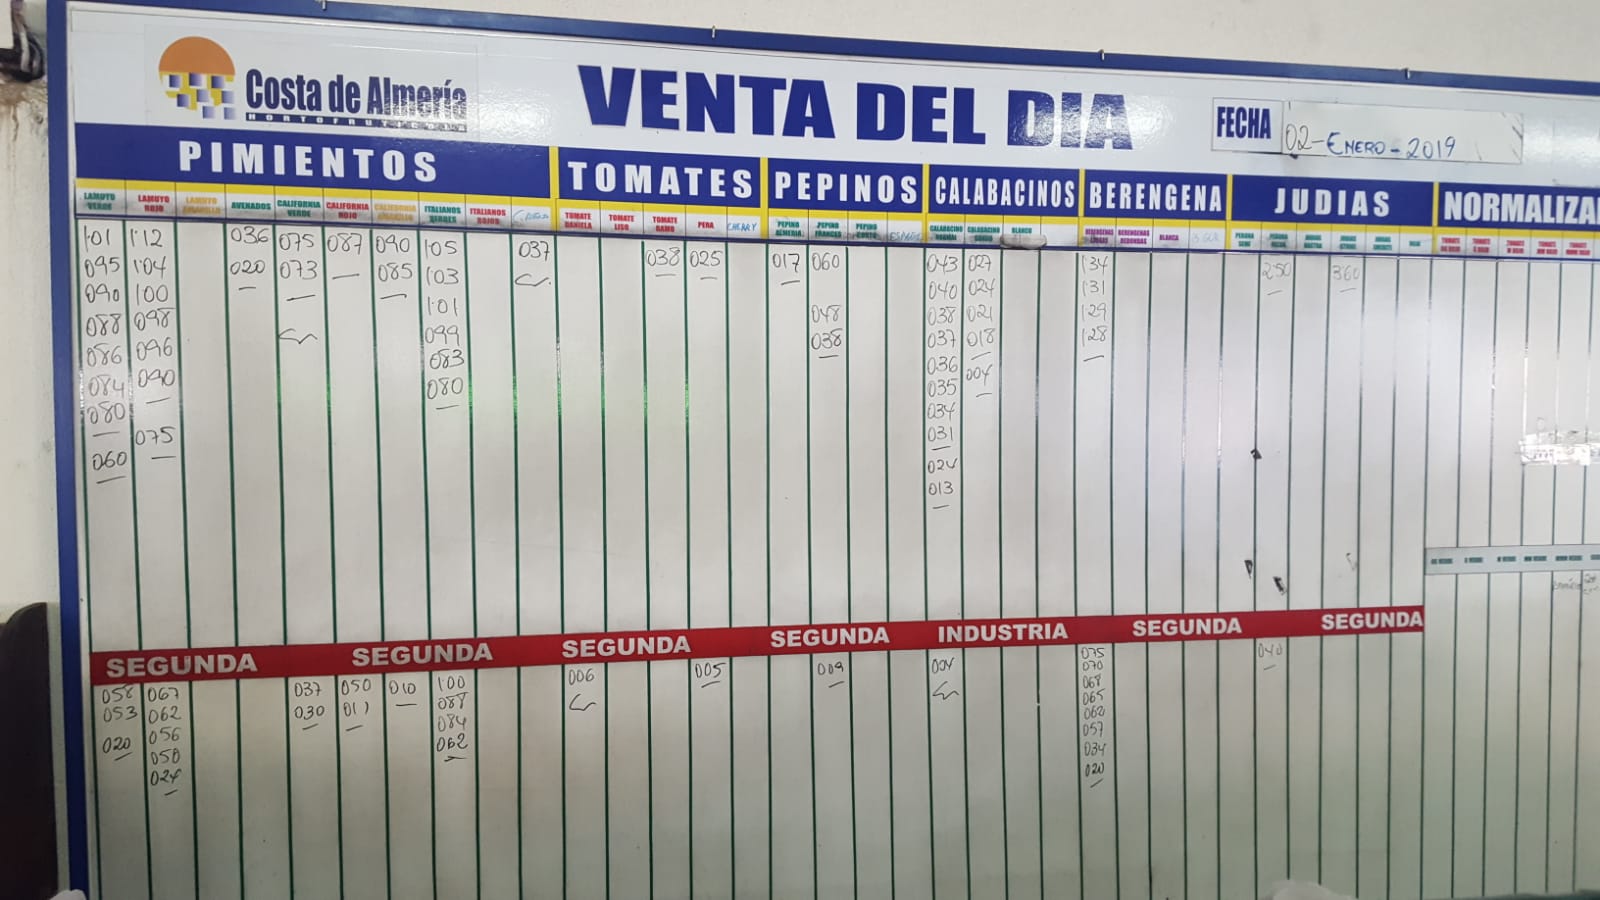 Costa de Almería
HORTOFRUTICOLA
VENTA DEL DIA
FECHA 02-ENERO-2019
PIMIENTOS TOMATES PEPINOS CALABACINOS BERENGENA JUDIAS NORMALIZA
LAMUYO VERDE LAMUYO ROJO LAMUYO AMARILLO AVENADOS CALIFORNIA VERDE CALIFORNIA ROJO CALIFORNIA AMARILLO ITALIANOS VERDES ITALIANOS ROJOS
TOMATE DANIELA TOMATE LISO TOMATE RAMO PERA CHERRY
PEPINO ALMERIA PEPINO FRANCES PEPINO CORTO ESPAÑOL
CALABACINO CALABACINO GORDO BLANCO
BERENGENAS LARGAS BERENGENAS REDONDAS BLANCA
1'01 1'12 036 075 087 090 1'05 037 038 025 017 060 043 027 1'34 250 360
095 1'04 020 073 085 1'03 040 024 1'31
090 1'00 1'01 048 038 021 1'29
088 098 099 038 037 018 1'28
086 096 083 036 004
084 090 080 035
080 034
075 031
060 024
013
SEGUNDA SEGUNDA SEGUNDA SEGUNDA INDUSTRIA SEGUNDA SEGUNDA
058 067 037 050 010 1'00 006 005 009 004 075 040
053 062 030 011 088 070
020 056 084 068
050 062 065
024 062
057
034
020